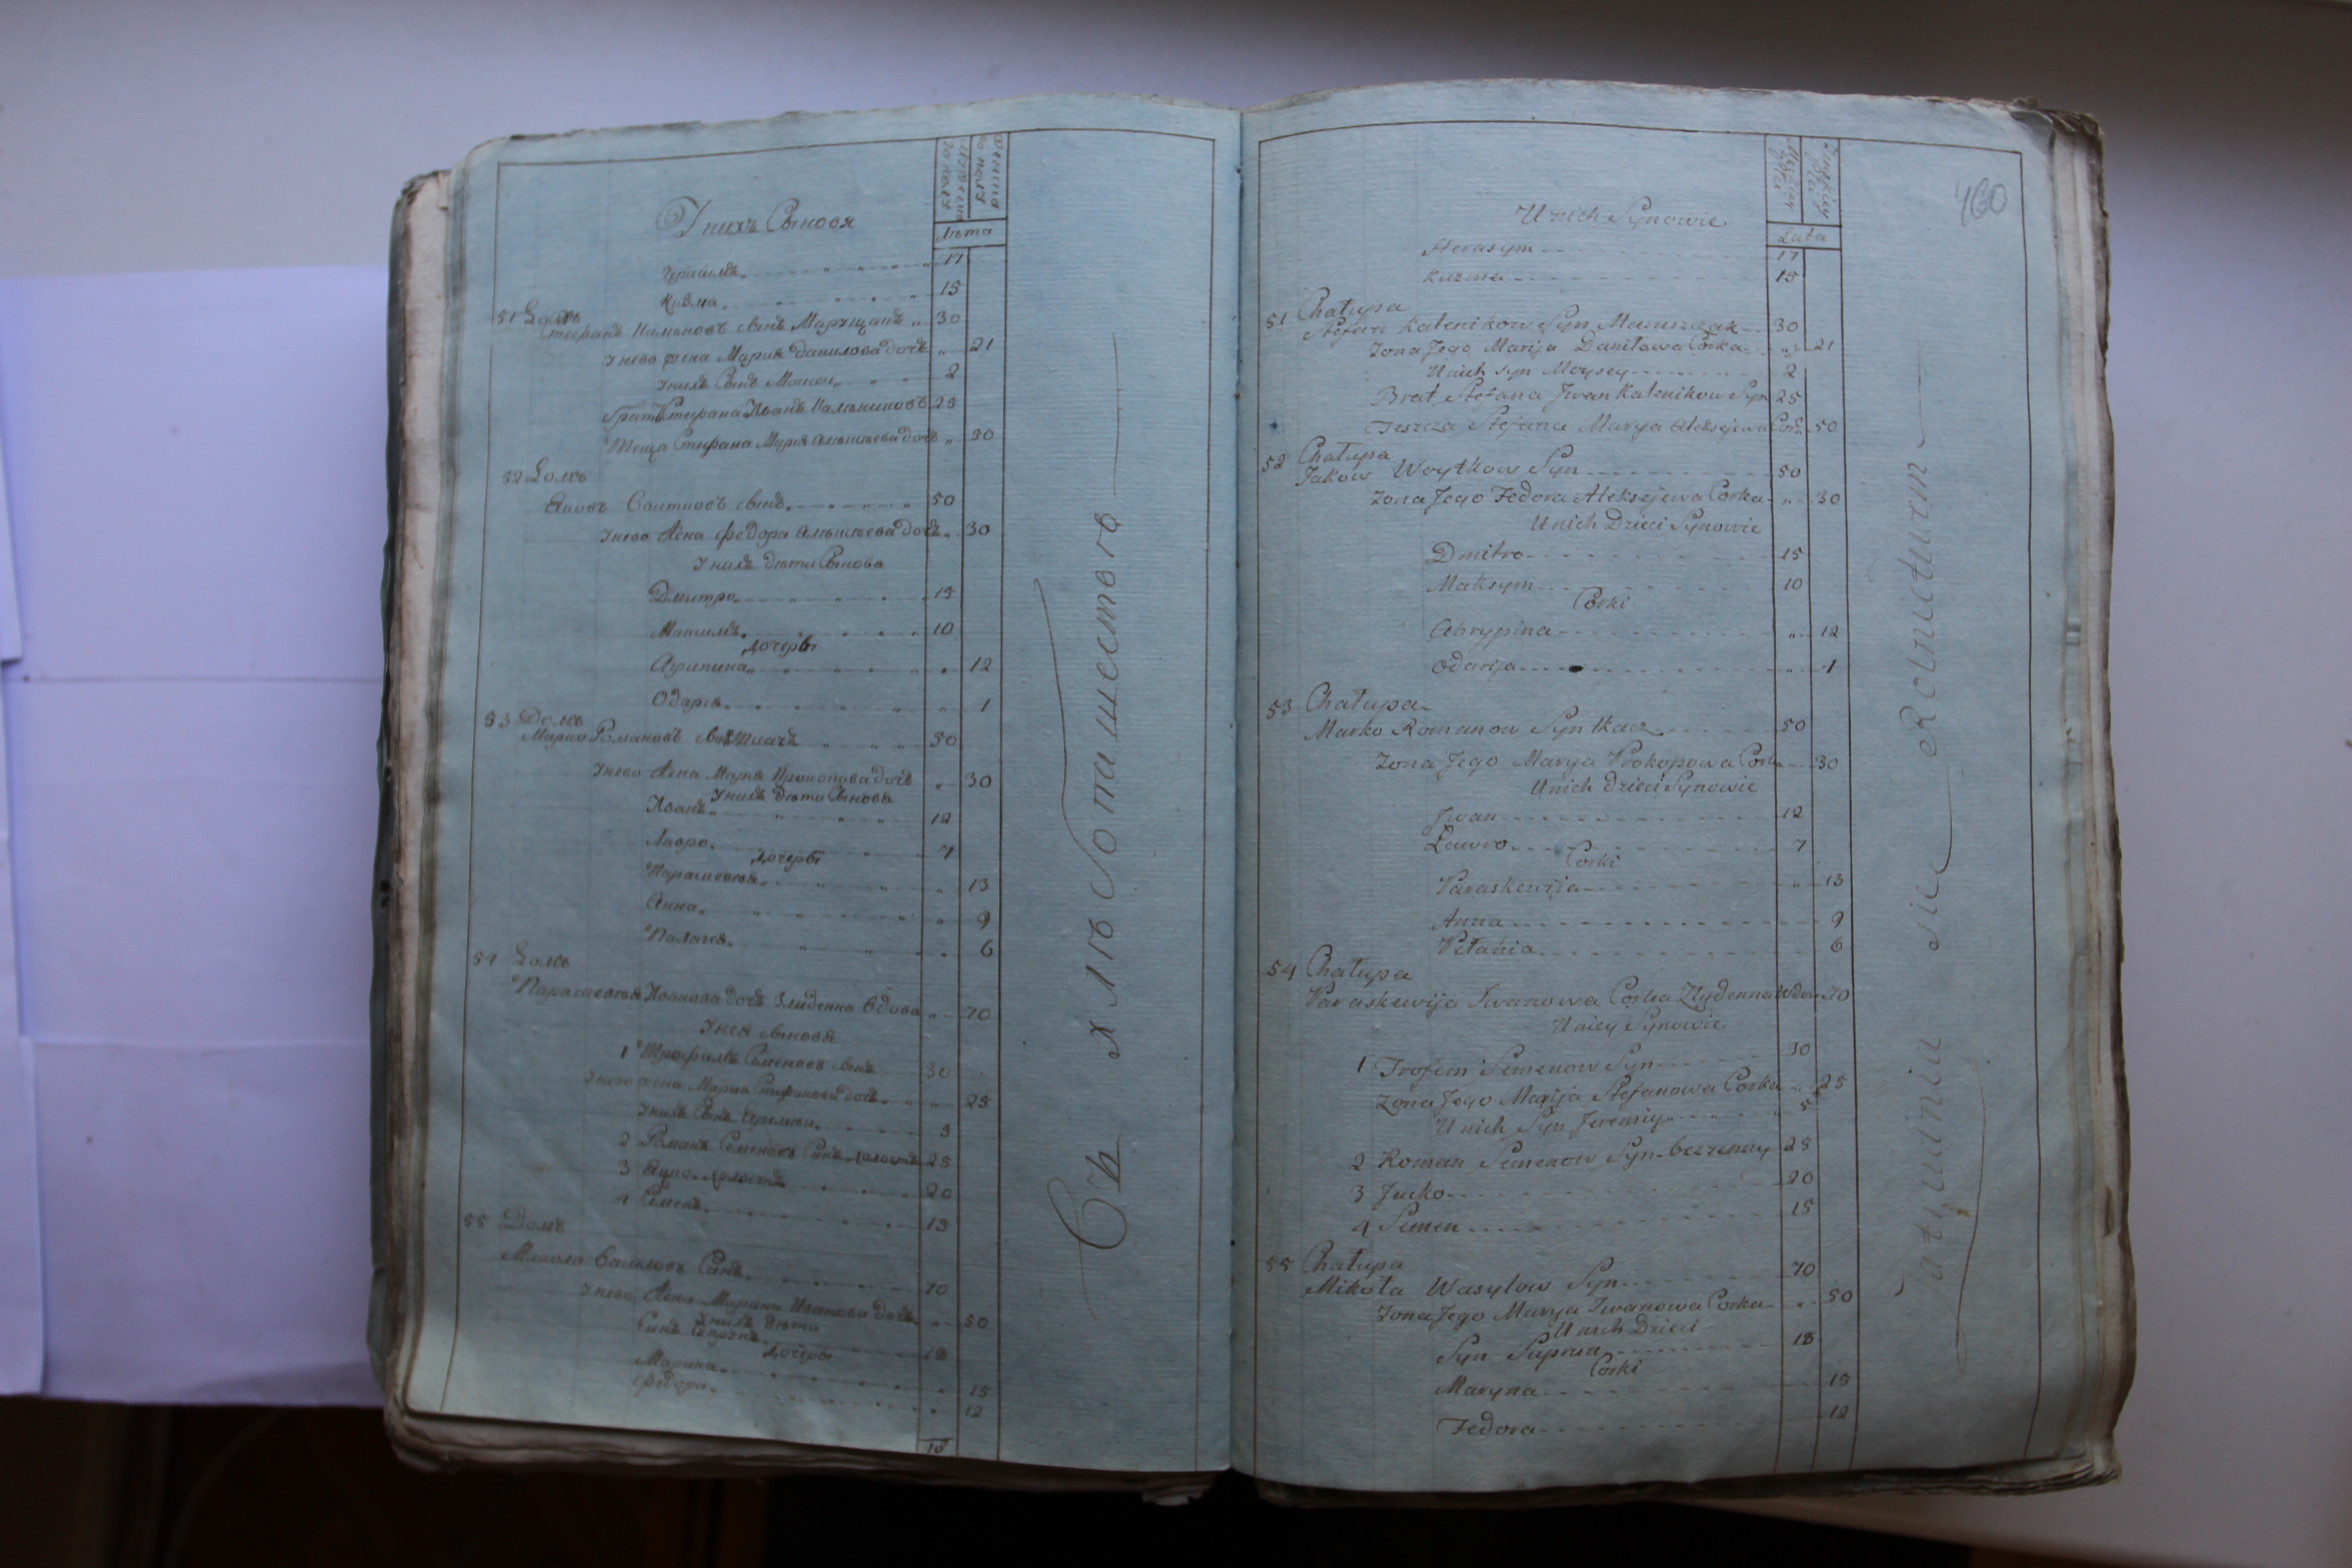 мужеска
го полу
женска
го полу
Лѣта
У нихъ Сыновя
Герасимъ 17
Кузма 15
51 Домъ
Стефанъ Калѣниковъ сынъ Марущакъ 30
У нево жена Мария Данилова дочь 21
У нихъ Сынъ Моисеи 2
Братъ Стефана Иванъ Калѣниковъ 25
Теща Стефана Мария Алѣксѣева дочь 50
52 Домъ
Яковъ Воитковъ сынъ 50
У нево Жена Федора Алѣксѣева дочь 30
У нихъ дѣти Сынова
Дмитро 15
Максимъ 10
дочеры
Агрипина 12
Одария 1
53 Домъ
Марко Романовъ сынъ Ткачъ 50
У нево Жена Мария Прокопова дочь 30
У нихъ дѣти Сынова
Иванъ 12
Лавро 7
дочеры
Параскевия 13
Анна 9
Палагея 6
54 Домъ
Параскевия Иванова дочь Злиденна Вдова 70
У нея сыновя
1 Трофимъ Семеновъ сынъ 30
У нево жена Мария Стефанова дочь 25
У нихъ Сынъ Еремѣи 5
2 Романъ Семеновъ Синъ холостъ 25
3 Яцко холостъ 20
4 Семенъ 15
55 Домъ
Микола Василовъ Синъ 70
У нево Жена Марина Иванова дочь 50
У нихъ дѣти
Синъ Супрунъ 18
дочеры
Марина 15
Федора 12
18
Съ хлѣбопашества
460
Męskiey
płci
Żenskiey
płci
Lata
U nich Synowie
Herasym 17
Kuzma 15
51 Chałupa
Stefan Kalenikow Syn Maruszczak 30
Zona Jego Marija Daniłowa Corka 21
U nich syn Moysey 2
Brat Stefana Jwan Kalenikow Syn 25
Teszcza Stefana Marya Aleksejewa Cor. 50
52 Chałupa
Jakow Woytkow Syn 50
Zona Jego Fedora Aleksejewa Corka 30
U nich Dzieci Synowie
Dmitro 15
Maksym 10
Corki
Ahrypina 12
Odarija 1
53 Chałupa
Marko Romanow Syn tkacz 50
Zona Jego Marya Prokopowa Corka 30
U nich Dzieci Synowie
Jwan 12
Ławro 7
Corki
Paraskewija 13
Anna 9
Pełahia 6
54 Chałupa
Paraskewija Jwanowa Corka Zlydenna Wdow. 70
U niey Synowie
1 Trofem Semenow Syn 30
Zona Jego Marija Stefanowa Corka 25
U nich Syn Jeremiy 5
2 Roman Semenow Syn bezzenny 25
3 Jacko 20
4 Semen 15
55 Chałupa
Mikoła Wasylow Syn 70
Zona Jego Marya Jwanowa Corka 50
U nich Dzieci
Syn Suprun 18
Corki
Maryna 15
Fedora 12
Zatrudnia się Rolnictwem